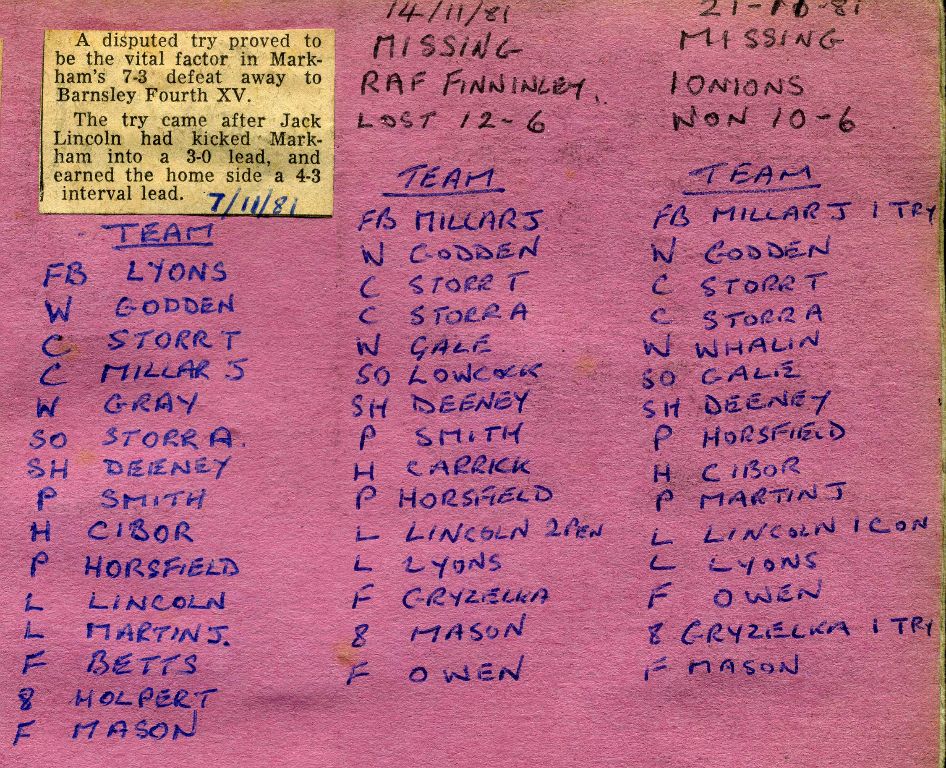 A disputed try proved to
be the vital factor in Mark-
ham's 7-3 defeat away to
Barnsley Fourth XV.
The try came after Jack
Lincoln had kicked Mark-
ham into a 3-0 lead, and
earned the home side a 4-3
interval lead.
7/11/81
TEAM
FB LYONS
W GODDEN
C STORR T
C MILLAR J
W GRAY
SO STORR A.
SH DEENEY
P SMITH
H CIBOR
P HORSFIELD
L LINCOLN
L MARTIN J.
F BETTS
8 HOLPERT
F MASON
14/11/81
MISSING
RAF FINNINLEY.
LOST 12-6
TEAM
FB MILLAR J.
W GODDEN
C STORR T
C STORR A
W GALE
SO LOWCOCK
SH DEENEY
P SMITH
H CARRICK
P HORSFIELD
L LINCOLN 2 PEN
L LYONS
F GRYZELKA
8 MASON
F OWEN
MISSING
IONIONS
WON 10-6
TEAM
FB MILLAR J 1 TRY
W GODDEN
C STORR T
C STORR A
W WHALIN
SO GALE
SH DEENEY
P HORSFIELD
H CIBOR
P MARTIN J
L LINCOLN 1 CON
L LYONS
F OWEN
8 GRYZELKA 1 TRY
F MASON